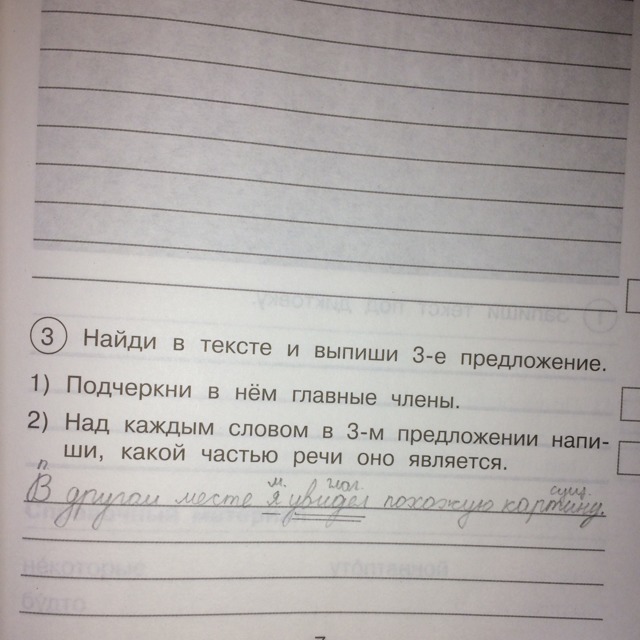 3 Найди в тексте и выпиши 3-е предложение.
1) Подчеркни в нём главные члены.
2) Над каждым словом в 3-м предложении напи-
ши, какой частью речи оно является.
п м. глаг. сущ.
В другом месте я увидел похожую картину.
некоторые утоптанной
будто